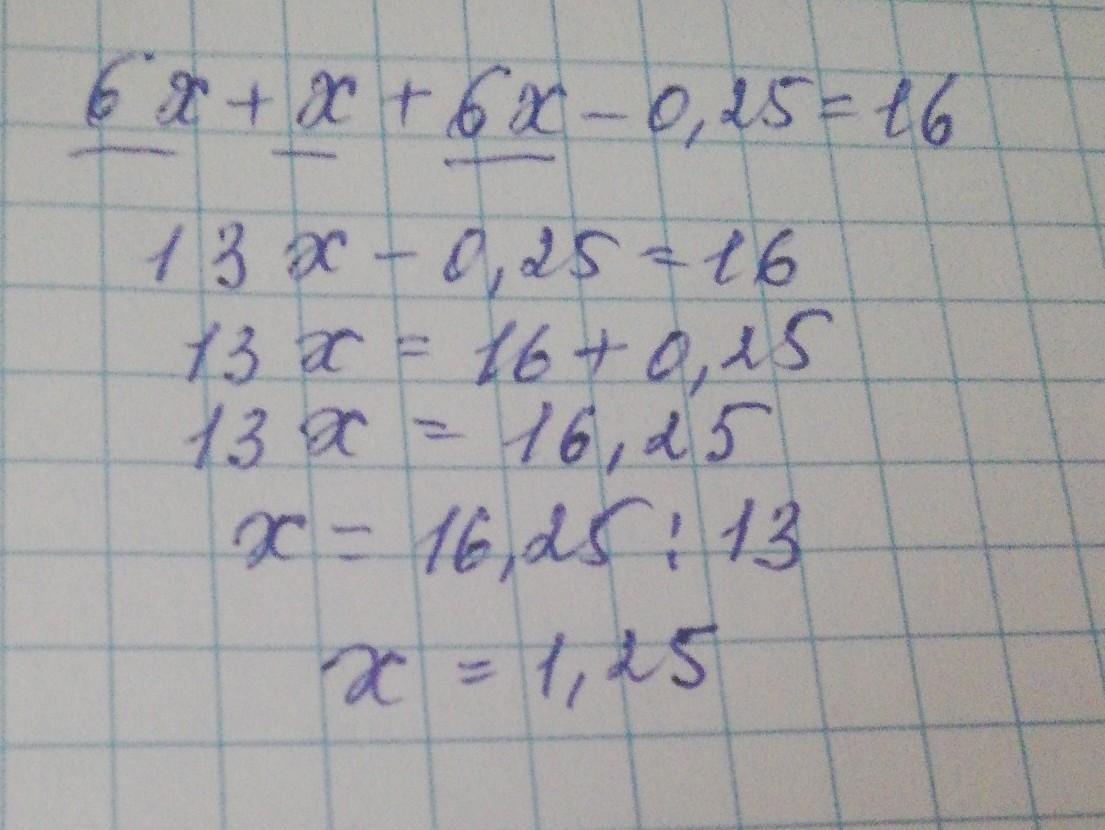 6x + x + 6x - 0,25 = 16
13x - 0,25 = 16
13x = 16 + 0,25
13x = 16,25
x = 16,25 : 13
x = 1,25